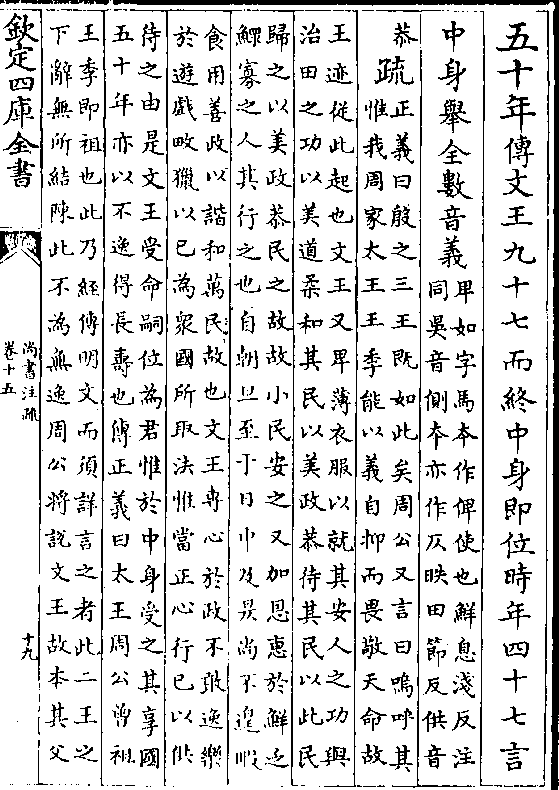 五十年傳文王九十七而終中身即位時年四十七言
中身舉全數音義
卑如字馬本作俾使也鮮息淺反注
同昃音側本亦作仄昳田節反供音
恭
疏
正義曰殷之三王既如此矣周公又言曰嗚呼其
惟我周家太王王季能以義自抑而畏敬天命故
王迹從此起也文王又卑薄衣服以就其安人之功與
治田之功以美道柔和其民以美政恭待其民以此民
歸之以美政恭民之故故小民安之又加恩惠於鮮乏
鰥寡之人其行之也自朝旦至于日中及昃尚不遑暇
食用善政以諧和萬民故也文王專心於政不敢逸樂
於遊戲畋獵以已為衆國所取法惟當正心行已以供
待之由是文王受命嗣位為君惟於中身受之其享國
五十年亦以不逸得長壽也傳正義曰太王周公曾祖
王季即祖也此乃經傳明文而須詳言之者此二王之
下辭無所結陳此不為無逸周公將説文王故本其父
欽定四庫全書
尚書注疏
卷十五
十九